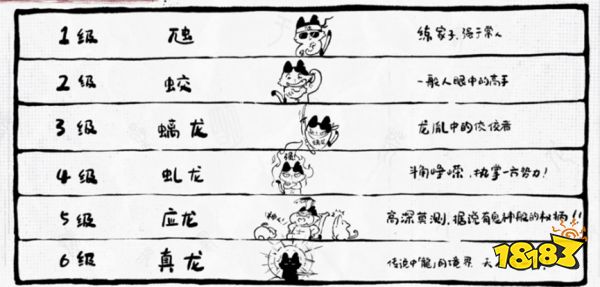 1级 虺 练家子,强于常人
2级 蛟 一般人眼中的高手
3级 螭龙 龙胤中的佼佼者
4级 虬龙 头角峥嵘,执掌一方势力!
5级 应龙 高深莫测,据说有鬼神般的权柄!!
6级 真龙 传说中「龍」的境界
18183